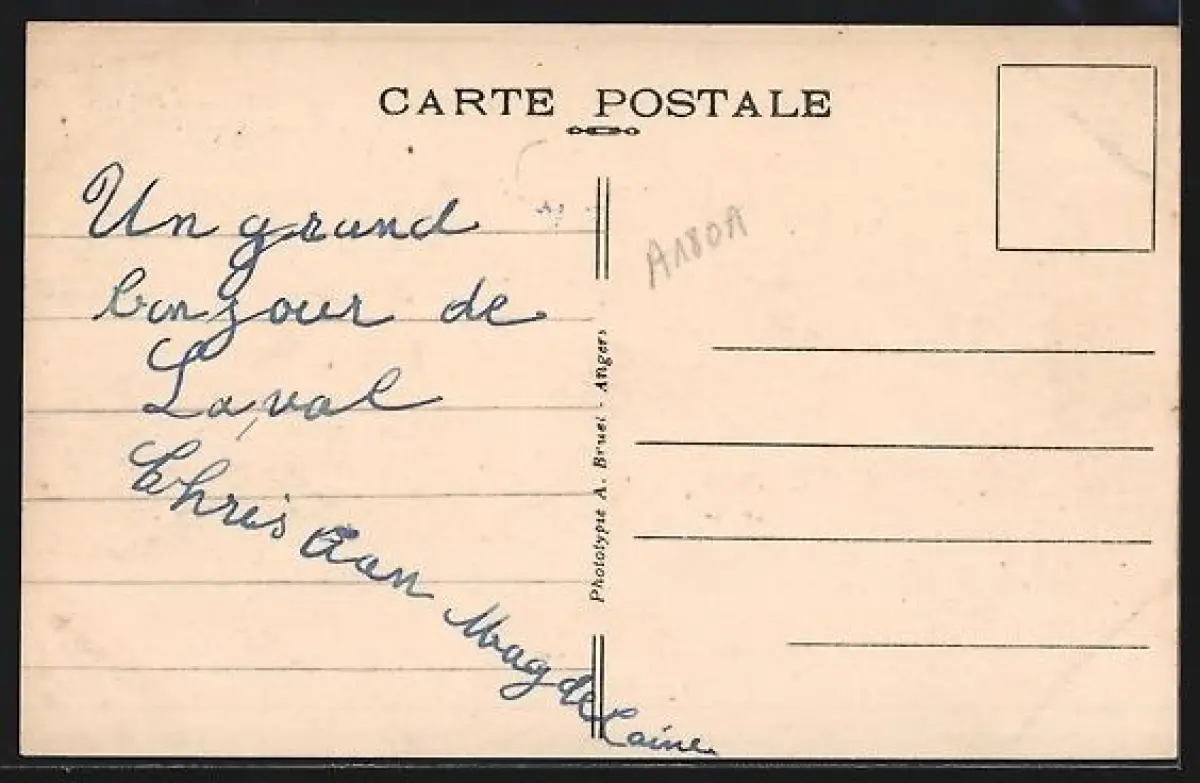 CARTE POSTALE
Un grand
bonjour de
Laval
Chris
Magdelaine
A180A
Phototypie A. Bruel - Angers